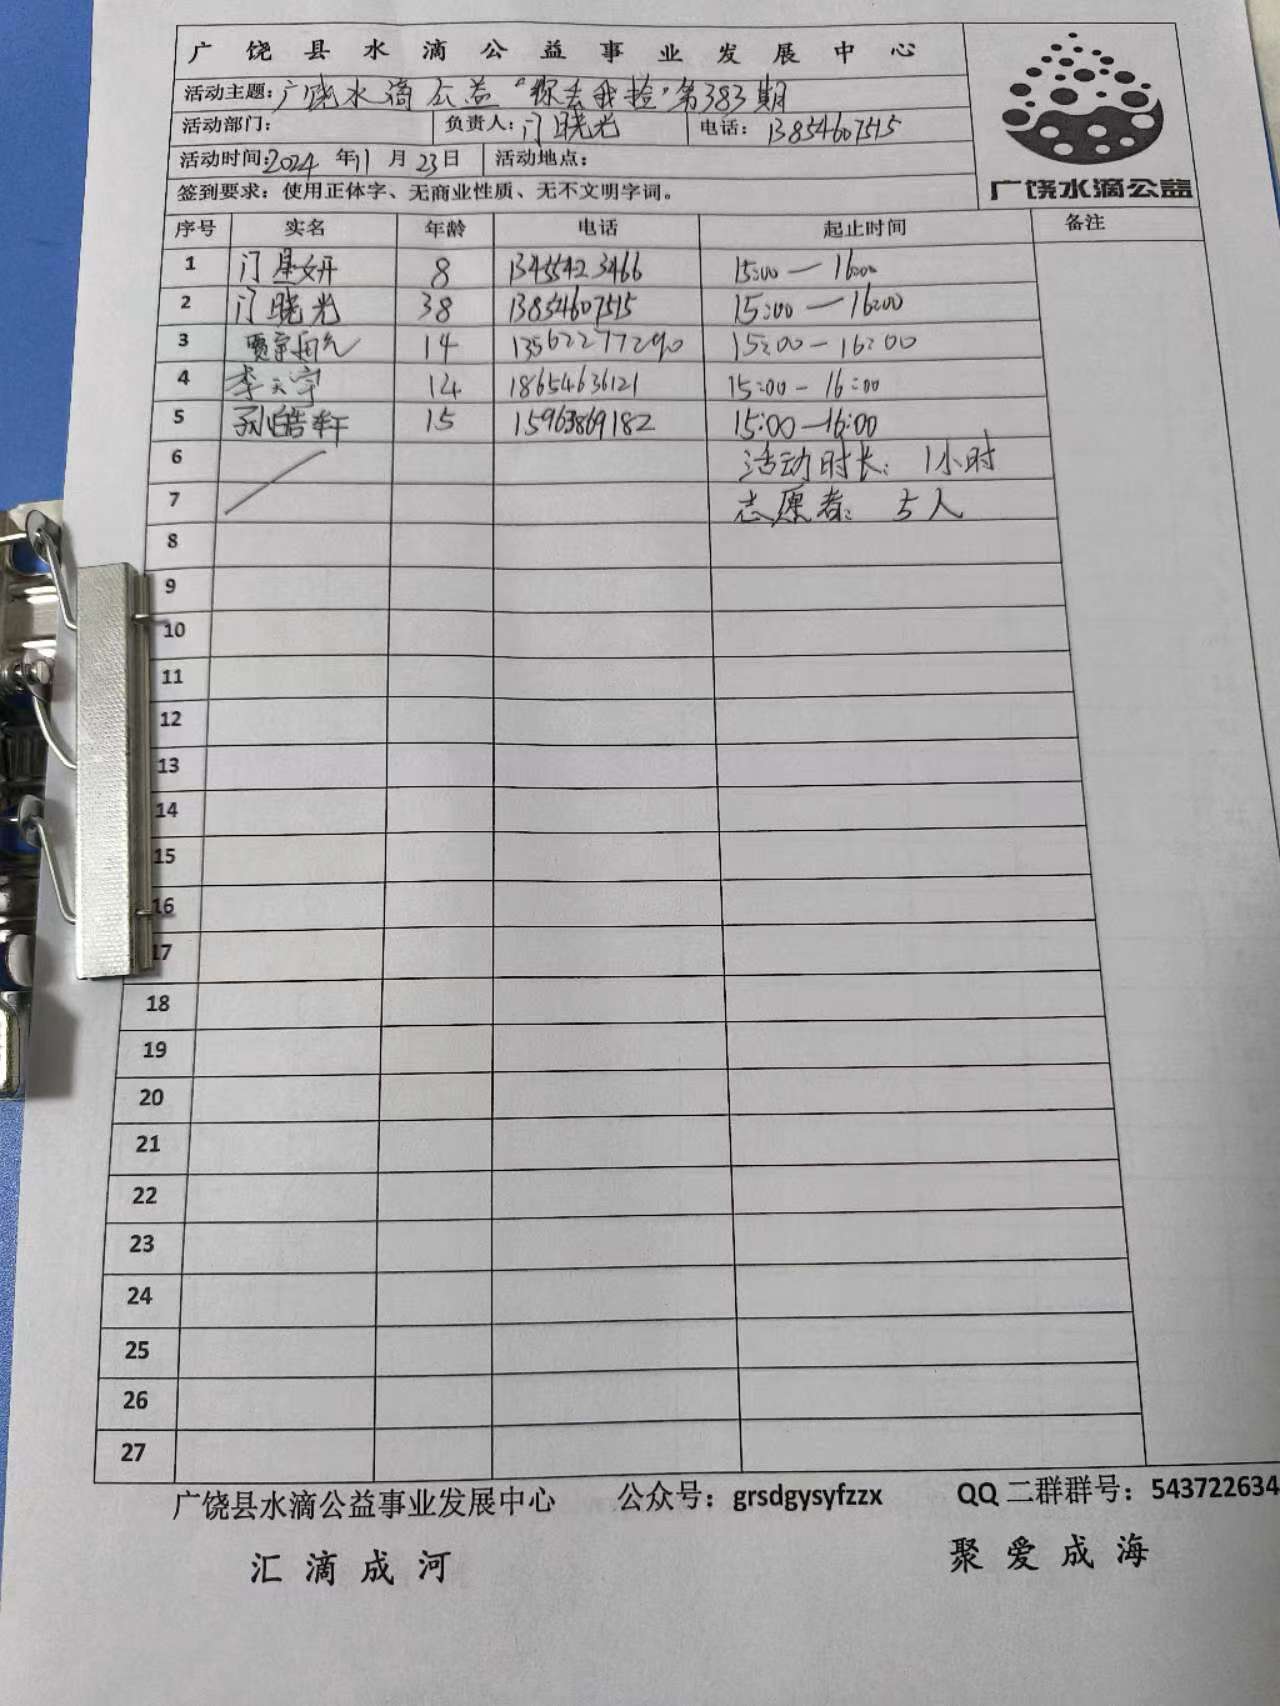 广饶县水滴公益事业发展中心
活动主题:广饶水滴公益“你丢我捡”第383期
活动部门: 负责人:门晓光 电话: 13854607515
活动时间:2024年11月23日 活动地点:
签到要求: 使用正体字、无商业性质、无不文明字词。
广饶水滴公益
序号 实名 年龄 电话 起止时间 备注
1 门星妍 8 13455423466 15:00—16:00
2 门晓光 38 13854607515 15:00—16:00
3 贾宗 14 13562277290 15:00-16:00
4 李天宇 14 18654636121 15:00-16:00
5 孙皓轩 15 15963869182 15:00-16:00
6 活动时长: 1小时
7 志愿者: 5人
8
9
10
11
12
13
14
15
16
17
18
19
20
21
22
23
24
25
26
27
广饶县水滴公益事业发展中心 公众号: grsdgysyfzzx QQ二群群号: 543722634
汇滴成河 聚爱成海